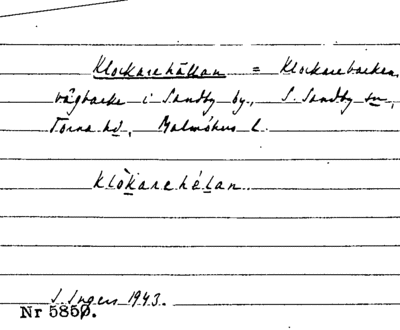 Klockarehällan = Klockarebacken,
vägbacke i Sandby by., S. Sandby sn,
Torna hd, Malmöhus l.
klòkarehélan.
I. Ingers 1943.
Nr 5850.